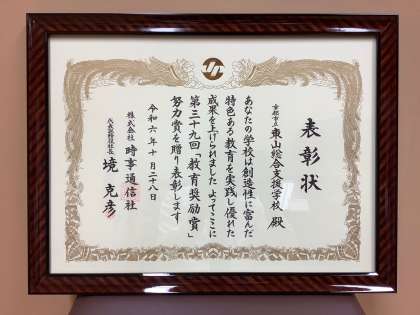 表彰状
京都市立 東山総合支援学校 殿
あなたの学校は創造性に富んだ
特色ある教育を実践し優れた
成果を上げられました よってここに
第三十九回「教育奨励賞」
努力賞を贈り表彰します
令和六年十月二十八日
株式会社 時事通信社
代表取締役社長 境 克彦